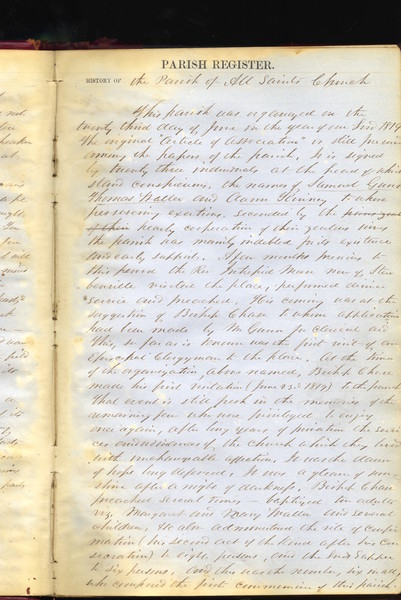 PARISH REGISTER.
HISTORY OF the Parish of All Saints Church
This parish was organized on the
twenty third day of June in the year of our Lord 1819
The original "Article of Association" is still preserved
among the papers of the parish. It is signed
by twenty three individuals at the head of which
stand conspicuous, the names of Samuel Gunn
Thomas Waller and Aaron Kinney to whose
persevering exertions, seconded by the
hearty cooperation of their zealous wives
the parish was mainly indebted for its existence
and early support. A few months previous to
this period the Rev. Intrepid Morse now of Steu
benville visited the place, performed divine
service and preached. His coming was at the
suggestion of Bishop Chase to whom application
had been made by Mr Gunn for clerical aid
This, so far as is known was the first visit of an
Episcopal Clergyman to the place. At the time
of the organization above named, Bishop Chase
made his first visitation (June 23d 1819) to the parish
That event is still fresh in the memories of the
remaining few who were privileged to enjoy
once again, after long years of privation the servi
ces and ordinances of the Church which they loved
with unchangeable affection. It was the dawn
of hope long deferred. It was a gleam of sun
shine after a night of darkness. Bishop Chase
preached several times — baptized two adults
viz. Margaret and Mary Waller and several
children. He also administered the rite of Confir
mation (his second act of the kind after his Con
secration) to eight persons, and the Lord's Supper
to six persons. And this was the number, six
who composed the first communion of this parish.